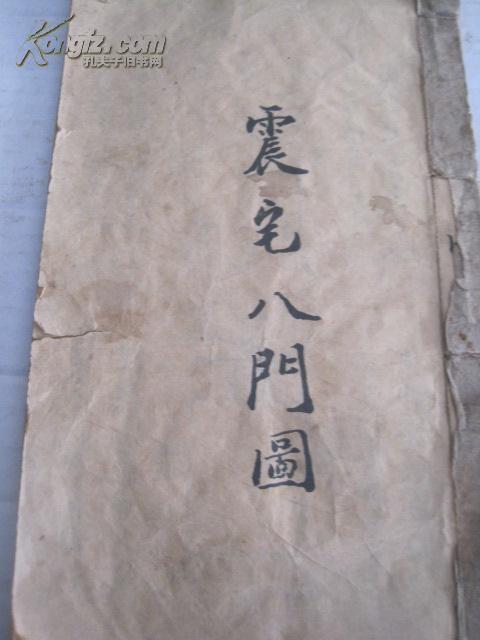 Kongfz.com
孔夫子旧书网
震宅八門圖